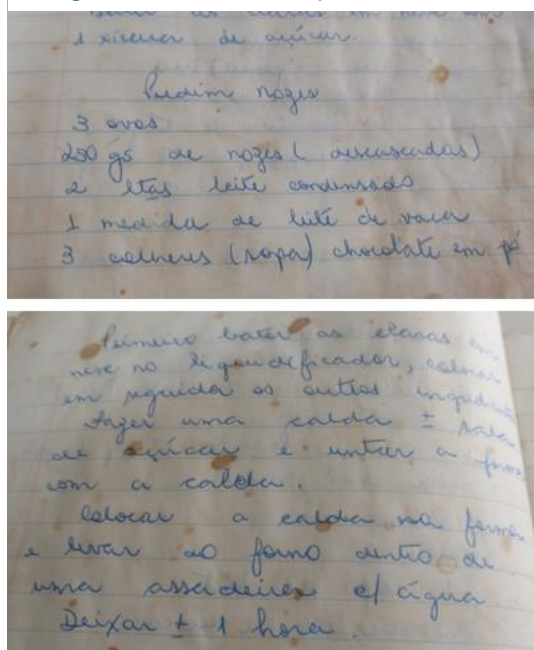 Bater as claras em neve com
1 xícara de açúcar.
Pudim nozes
3 ovos
250 gs de nozes (descascadas)
2 ltas leite condensado
1 medida de leite de vaca
3 colheres (sopa) chocolate em pó
Primeiro bater as claras em
neve no liquidificador, colocar
em seguida os outros ingredientes
Fazer uma calda ± rala
de açúcar e untar a forma
com a calda.
Colocar a calda na forma
e levar ao forno dentro de
uma assadeira c/ água.
Deixar ± 1 hora.